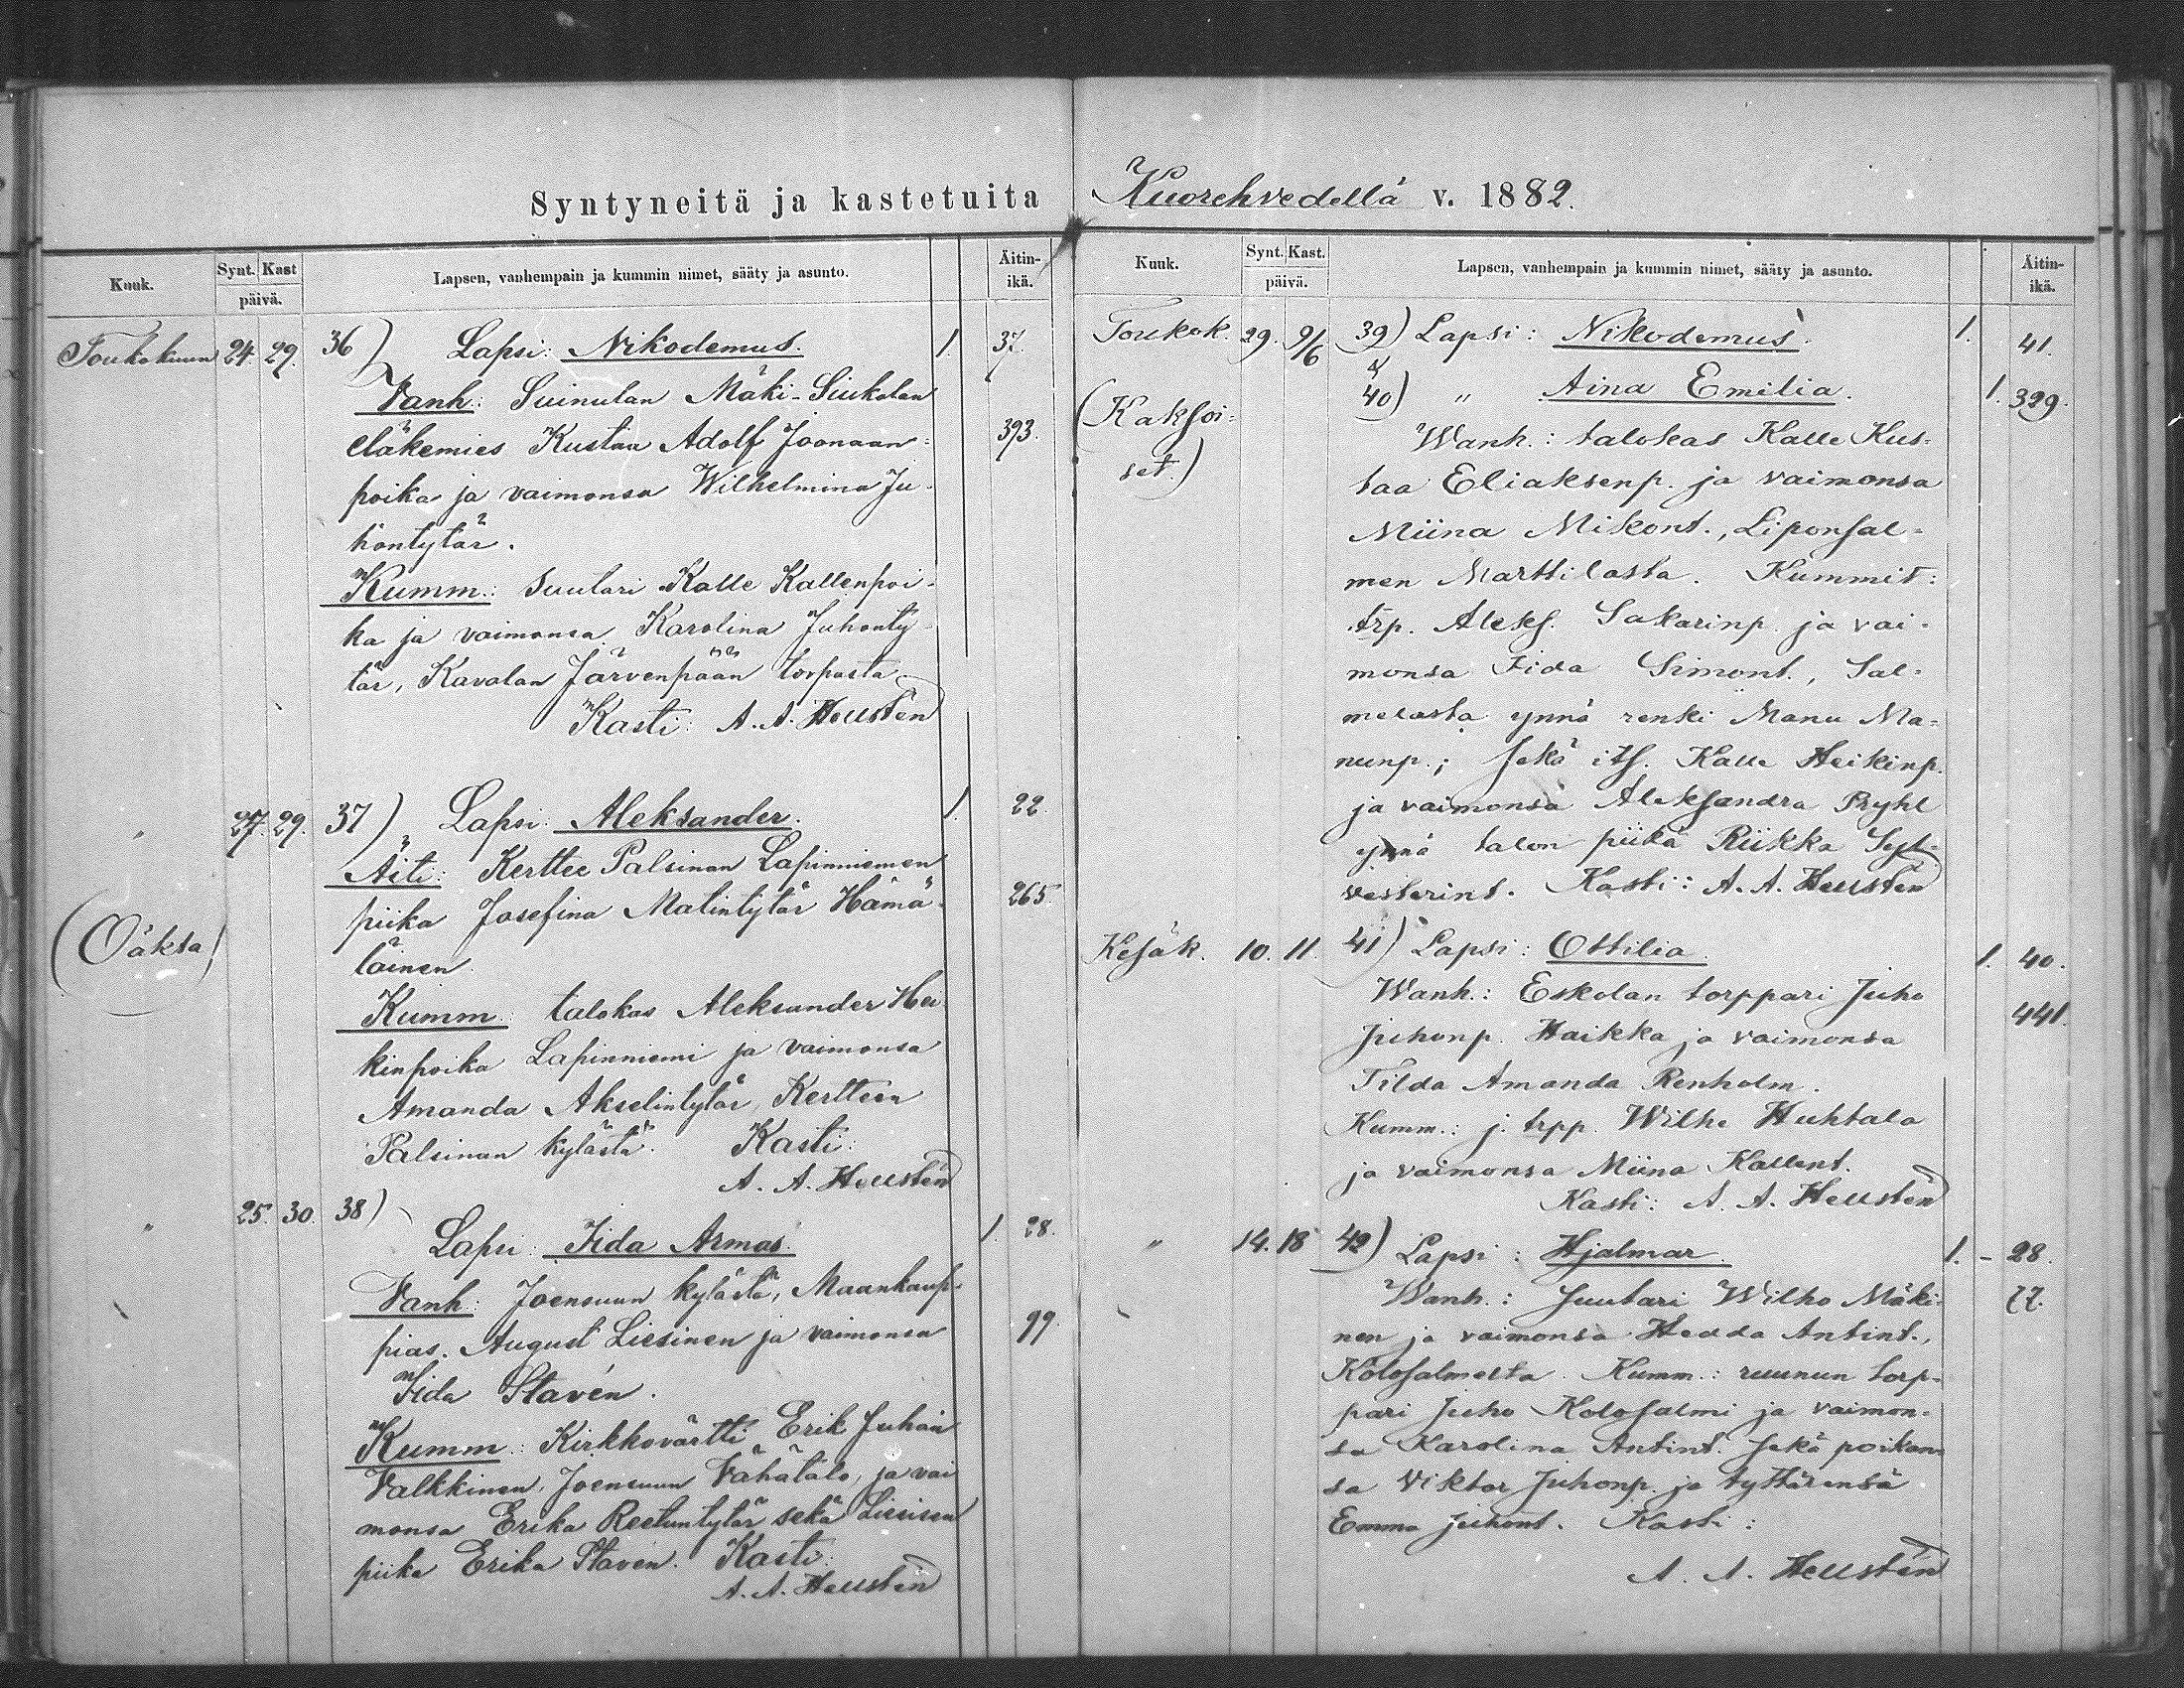 Syntyneitä ja kastetuita
Kuuk. Synt. Kast päivä. Lapsen, vanhempain ja kummin nimet, sääty ja asunto. Äitin-ikä.
Toukokuun 24. 29. 36) Lapsi: Nikodemus. 1. 37.
Vanh: Suinulan Mäki-Siukolan
eläkemies Kustaa Adolf Joonaan= 393.
poika ja vaimonsa Wilhelmina Ju-
hontytär.
Kumm: Suutari Kalle Kallenpoi-
ka ja vaimonsa Karolina Juhonty-
tär, Kavalan Järvenpään torpasta.
Kasti: A. A. Hellstén
" 27. 29. 37) Lapsi: Aleksander. 1. 22.
Äiti: Kerttee Palsinan Lapinniemen
piika Josefina Matintytär Hämä- 265.
(Oäkta) läinen.
Kumm: talokas Aleksander Hei-
kinpoika Lapinniemi ja vaimonsa
Amanda Akselintytär, Kertteen
Palsinan kylästä. Kasti:
A. A. Hellstén
" 25. 30. 38)
Lapsi: Iida Armas. 1. 28.
Vanh: Joensuun kylästä, Maankaup-
pias. August Liesinen ja vaimonsa 99.
Iida Stavén.
Kumm: Kirkkovärtti Erik Juhan
Valkkinen, Joensuun Vähätalo, ja vai
monsa Erika Reetuntytär sekä Liesisen
piika Erika Stavén. Kasti:
A. A. Hellstén
Kuorehvedellä v. 1882.
Kuuk. Synt. Kast. päivä. Lapsen, vanhempain ja kummin nimet, sääty ja asunto. Äitin-ikä.
Toukok. 29. 9/6 39) Lapsi: Nikodemus. 1. 41.
&
40) " Aina Emilia. 1. 329.
(Kaksoi=
set.)
Wanh.: talokas Kalle Kus=
taa Eliaksenp. ja vaimonsa
Miina Mikont., Liponsal=
men Marttilasta. Kummit:
trp. Aleks. Sakarinp. ja vai-
monsa Iida Simont., Sal=
melasta ynnä renki Manu Ma=
nunp.; sekä its. Kalle Heikinp.
ja vaimonsa Aleksandra Pryhl
ynnä talon piika Riikka Syl=
vesterint. Kasti: A. A. Hellstén
Kesäk. 10. 11. 41) Lapsi: Ottilia. 1. 40.
Wanh.: Eskolan torppari Juho 441.
Juhonp. Haikka ja vaimonsa
Tilda Amanda Renholm.
Kumm.: j. trpp. Wilhe Huhtala
ja vaimonsa Miina Kallent.
Kasti: A. A. Hellstén
" 14. 18 42) Lapsi: Hjalmar. 1. - 28.
Wanh.: Suutari Wilho Mäki- 77.
nen ja vaimonsa Hedda Antint.,
Kolosalmelta. Kumm.: ruunun torp-
pari Juho Kolosalmi ja vaimon-
sa Karolina Antint. sekä poikan=
sa Viktor Juhonp. ja tyttärensä
Emma Juhont. Kasti:
A. A. Hellstén